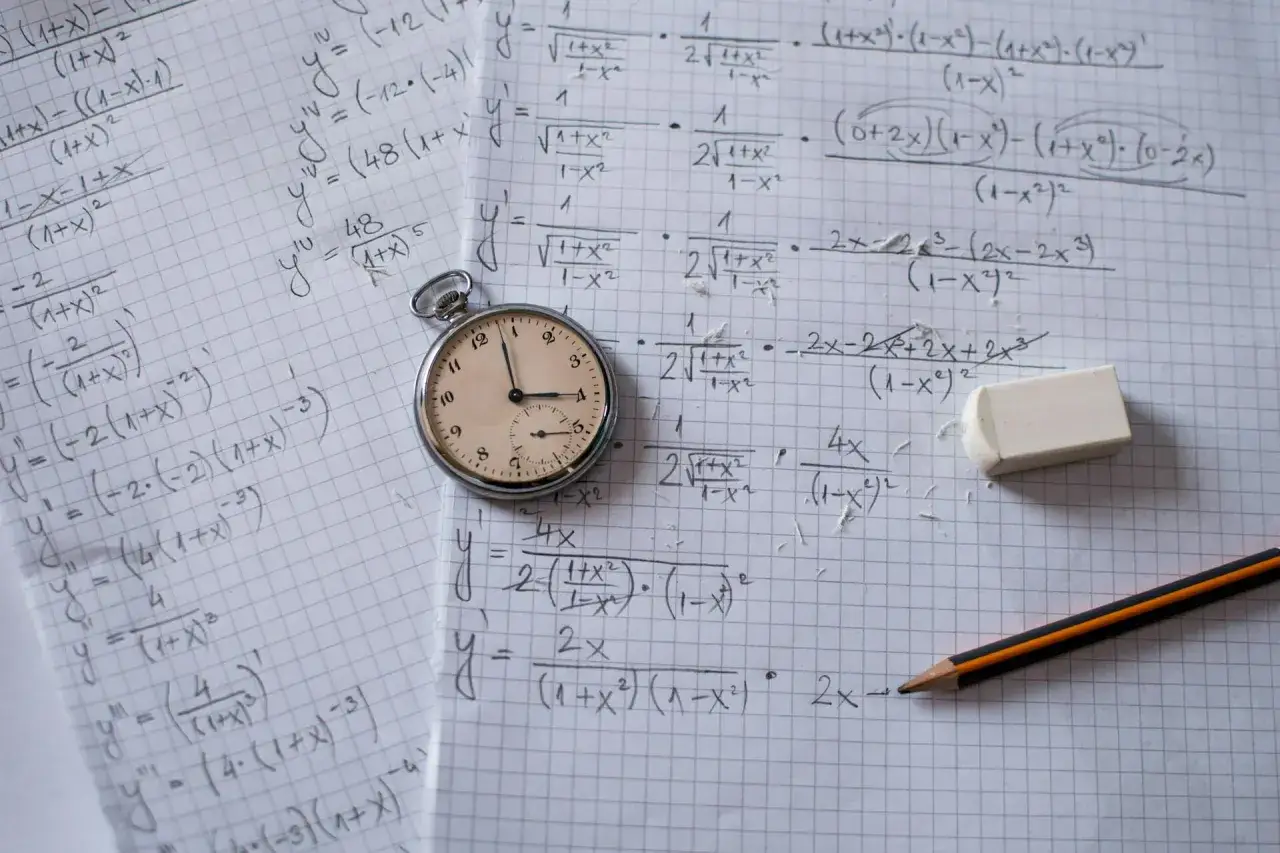 (1+x)²
(1+x) - ((1-x)·1)
(1+x)²
1-x-1+x
(1+x)²
-2
(1+x)²
= (-2/(1+x)²)'
y'' = (-2(1+x)⁻²)'
y'' = (-2·(-2)(1+x)⁻³)
y'' = (4(1+x)⁻³)
y'' = 4/(1+x)³
y''' = (4/(1+x)³)'
y''' = (4·(1+x)⁻³)
·(-3)(1+x)⁻⁴
yᴵⱽ = (-12(1+
yᴵⱽ = (-12·(-4)(
yᴵⱽ = (48(1+x
yᴵⱽ = 48/(1+x)⁵
y' = 1/√((1+x²)/(1-x²)) · 1/(2√((1+x²)/(1-x²))) · ((1+x²)'·(1-x²)-(1+x²)·(1-x²)')/(1-x)²
y' = 1/√((1+x²)/(1-x²)) · 1/(2√((1+x²)/(1-x²))) · ((0+2x)(1-x²)-(1+x²)·(0-2x))/(1-x²)²
y' = 1/√((1+x²)/(1-x²)) · 1/(2√((1+x²)/(1-x²))) · (2x-2x³-(2x-2x³))/(1-x²)²
· 1/(2√((1+x²)/(1-x²))) · (2x-2x³+2x+2x³)/(1-x²)²
1-x² · 1/(2√((1+x²)/(1-x²))) · 4x/(1-x²)²
y' = 4x/(2·((1+x²)/(1-x²))·(1-x²)²)
y' = 2x/((1+x²)(1-x²)) · 2x →
12 1 2 3 4 5 7 8 9 10 11